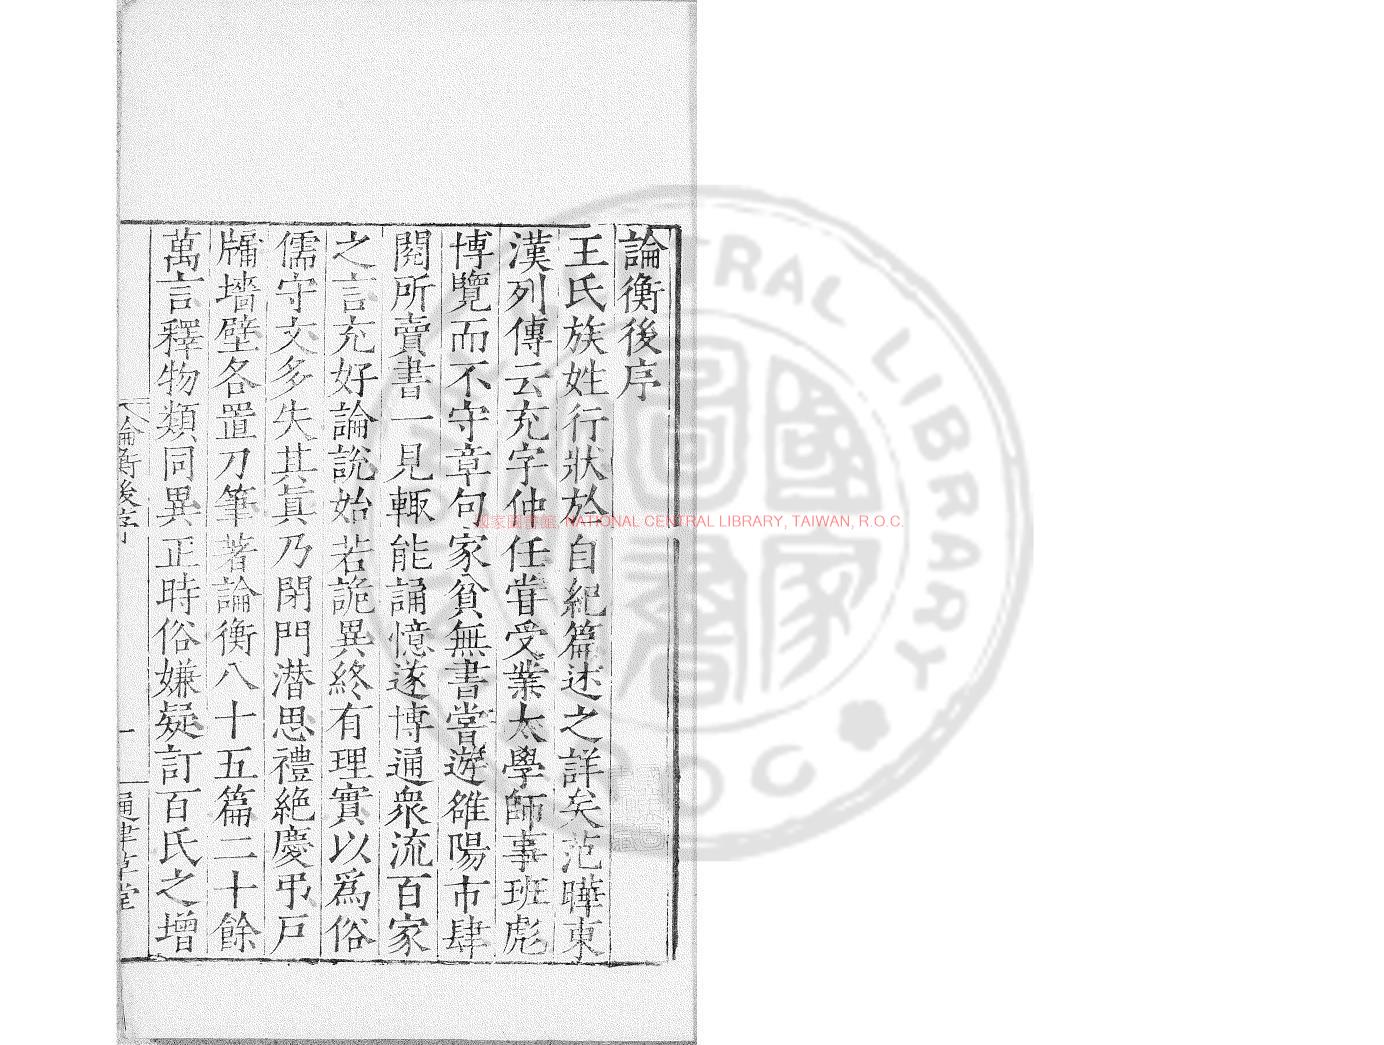 論衡後序
王氏族姓行狀於自紀篇述之詳矣范曄東
漢列傳云充字仲任甞受業太學師事班彪
博覽而不守章句家貧無書嘗遊雒陽市肆
閱所賣書一見輒能誦憶遂博通衆流百家
之言充好論說始若詭異終有理實以爲俗
儒守文多失其眞乃閉門潛思禮絶慶弔戶
牖墻壁各置刀筆著論衡八十五篇二十餘
萬言釋物類同異正時俗嫌疑訂百氏之增
論衡後序
一
通津草堂
國家圖書館 NATIONAL CENTRAL LIBRARY, TAIWAN, R.O.C.